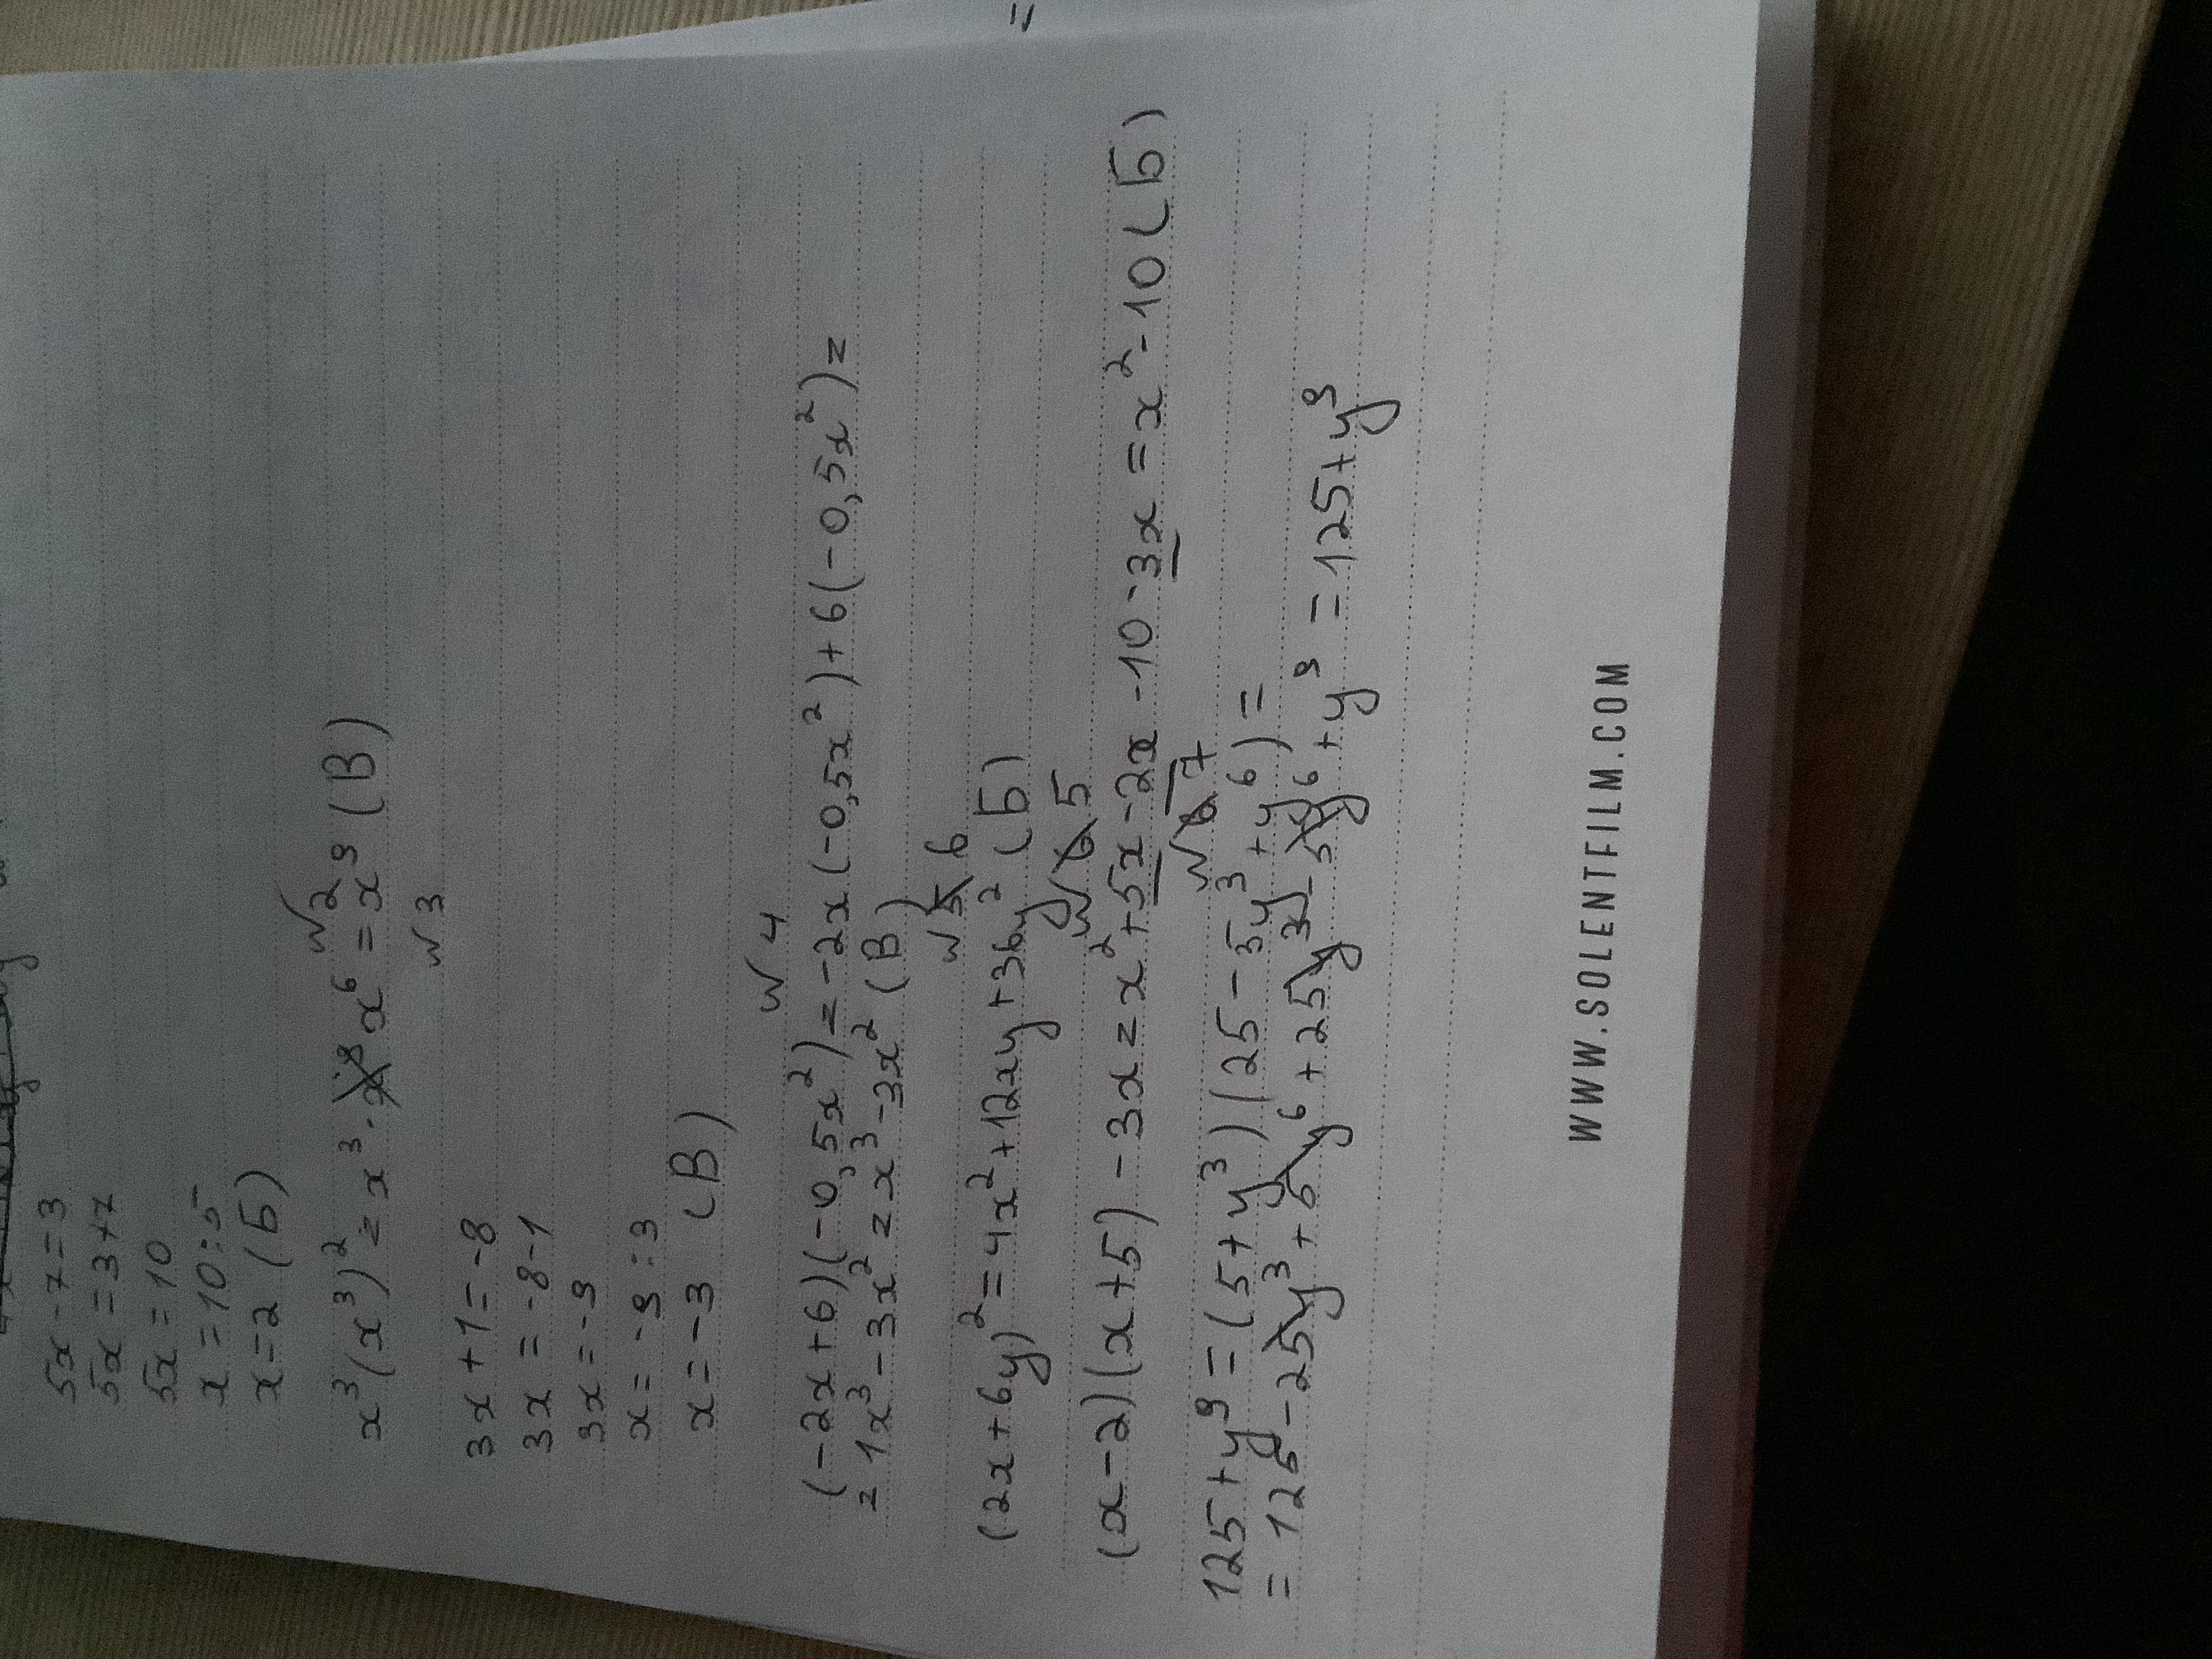 5x - 7 = 3
5x = 3+7
5x = 10
x = 10:5
x = 2 (Б)
№2
x³(x³)² = x³·x⁶ = x⁹ (В)
№3
3x + 1 = -8
3x = -8-1
3x = -9
x = -9:3
x = -3 (В)
№4
(-2x+6)(-0,5x²) = -2x(-0,5x²)+6(-0,5x²) =
= 1x³-3x² = x³-3x² (В)
№6
(2x+6y)² = 4x²+12xy+36y² (Б)
№5
(x-2)(x+5) - 3x = x²+5x-2x-10-3x = x²-10 (Б)
№7
125+y⁹ = (5+y³)(25-5y³+y⁶) =
= 125-25y³+5y⁶+25y³-5y⁶+y⁹ = 125+y⁹
=
WWW.SOLENTFILM.COM